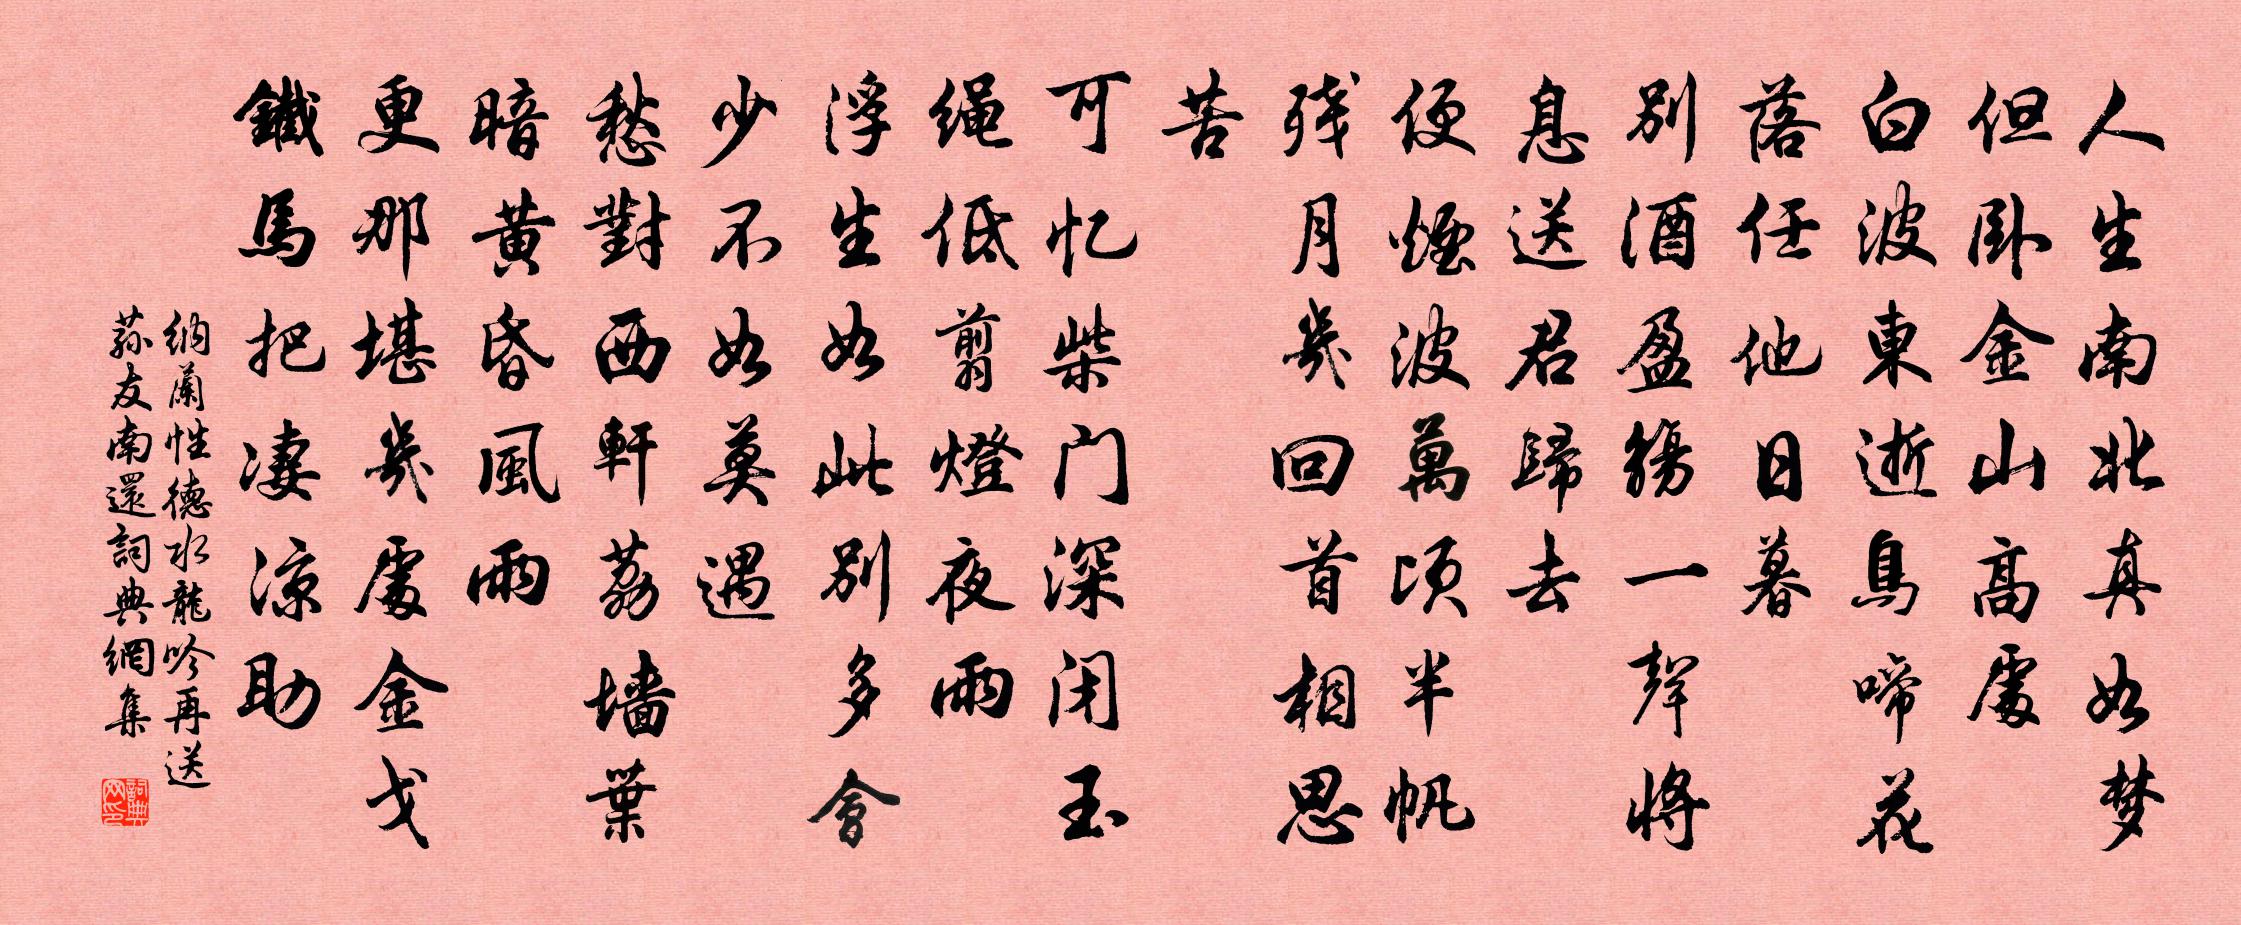 人生南北真如梦
但卧金山高處
白波東逝鳥啼花
落任他日暮
别酒盈觴一聲將
息送君歸去
便煙波萬頃半帆
残月幾回首相思
苦
可忆柴门深闭玉
绳低翦燈夜雨
浮生如此别多會
少不如莫遇
愁對西軒荔墙葉
暗黄昏風雨
更那堪幾處金戈
鐵馬把凄凉助
纳蘭性德水龍吟再送
荪友南還詞典網集
詞典网印